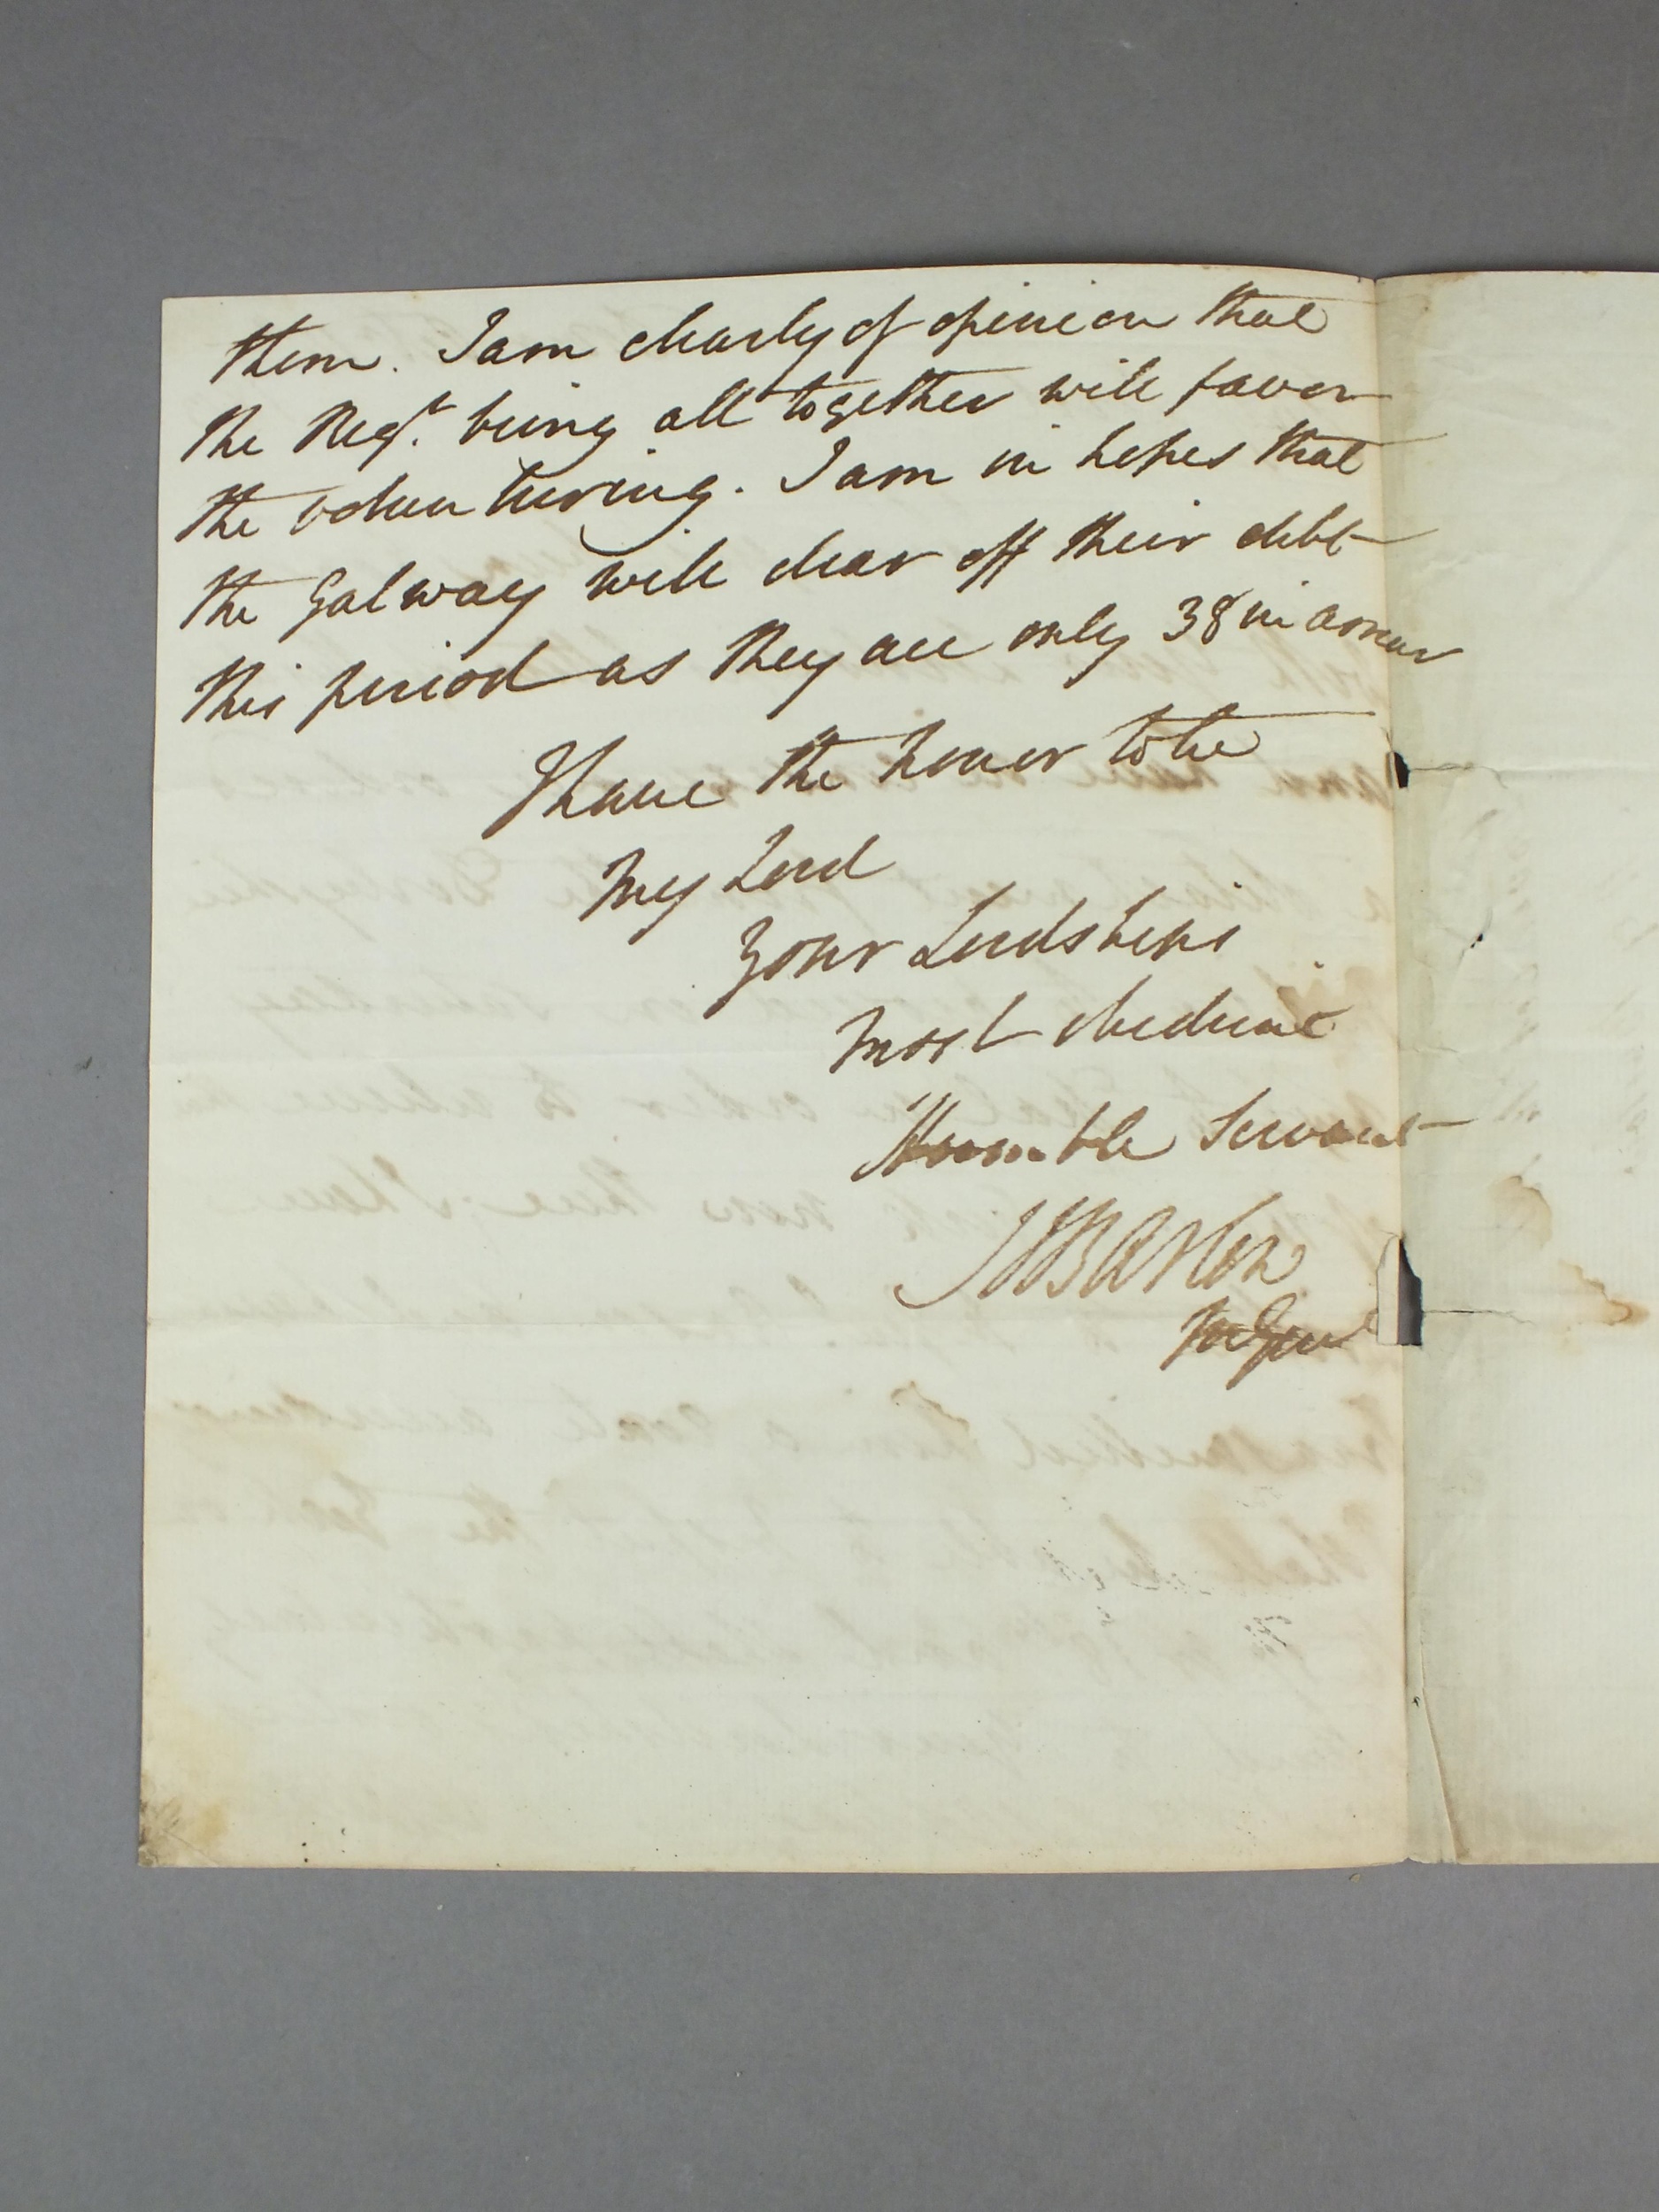 them. I am clearly of opinion that
the Regt. being all together will favor
the volunteering. I am in hopes that
the Galway will clear off their debt
this period as they are only 38 in arrear
I have the honor to be
My Lord
Your Lordships
most obedient
Humble Servant
M Genl